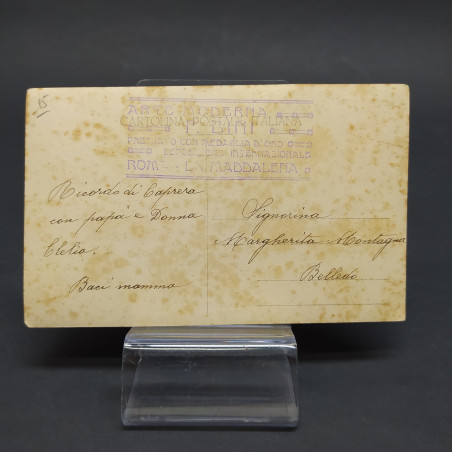 15
ARTE MODERNA
CARTOLINA POSTALE ITALIANA
PREMIATO CON MEDAGLIA D'ORO
INTERNAZIONALE
ROMA LA MADDALENA
Ricordo di Caprera
con papà e Donna
Clelia.
Baci mamma
Signorina
Margherita Montagna
Belledo